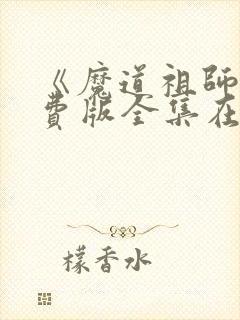 《魔道祖师
费版全集在
檬香水